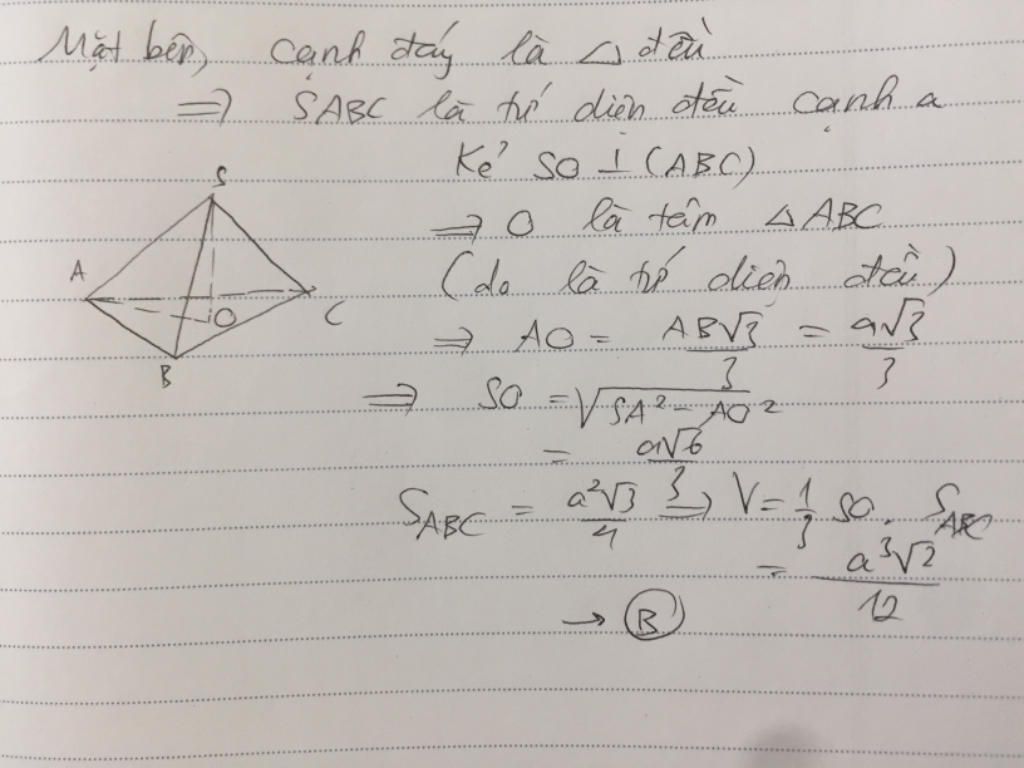 Mặt bên, cạnh đáy là △ đều
⇒ SABC là tứ diện đều cạnh a
Kẻ SO ⊥ (ABC)
⇒ O là tâm △ABC
(do là tứ diện đều)
⇒ AO = AB√3/3 = a√3/3
⇒ SO = √(SA² - AO²)
= a√6/3
S_ABC = a²√3/4 ⇒ V = 1/3 SO. S_ABC
= a³√2/12
→ B
S
A
O
C
B